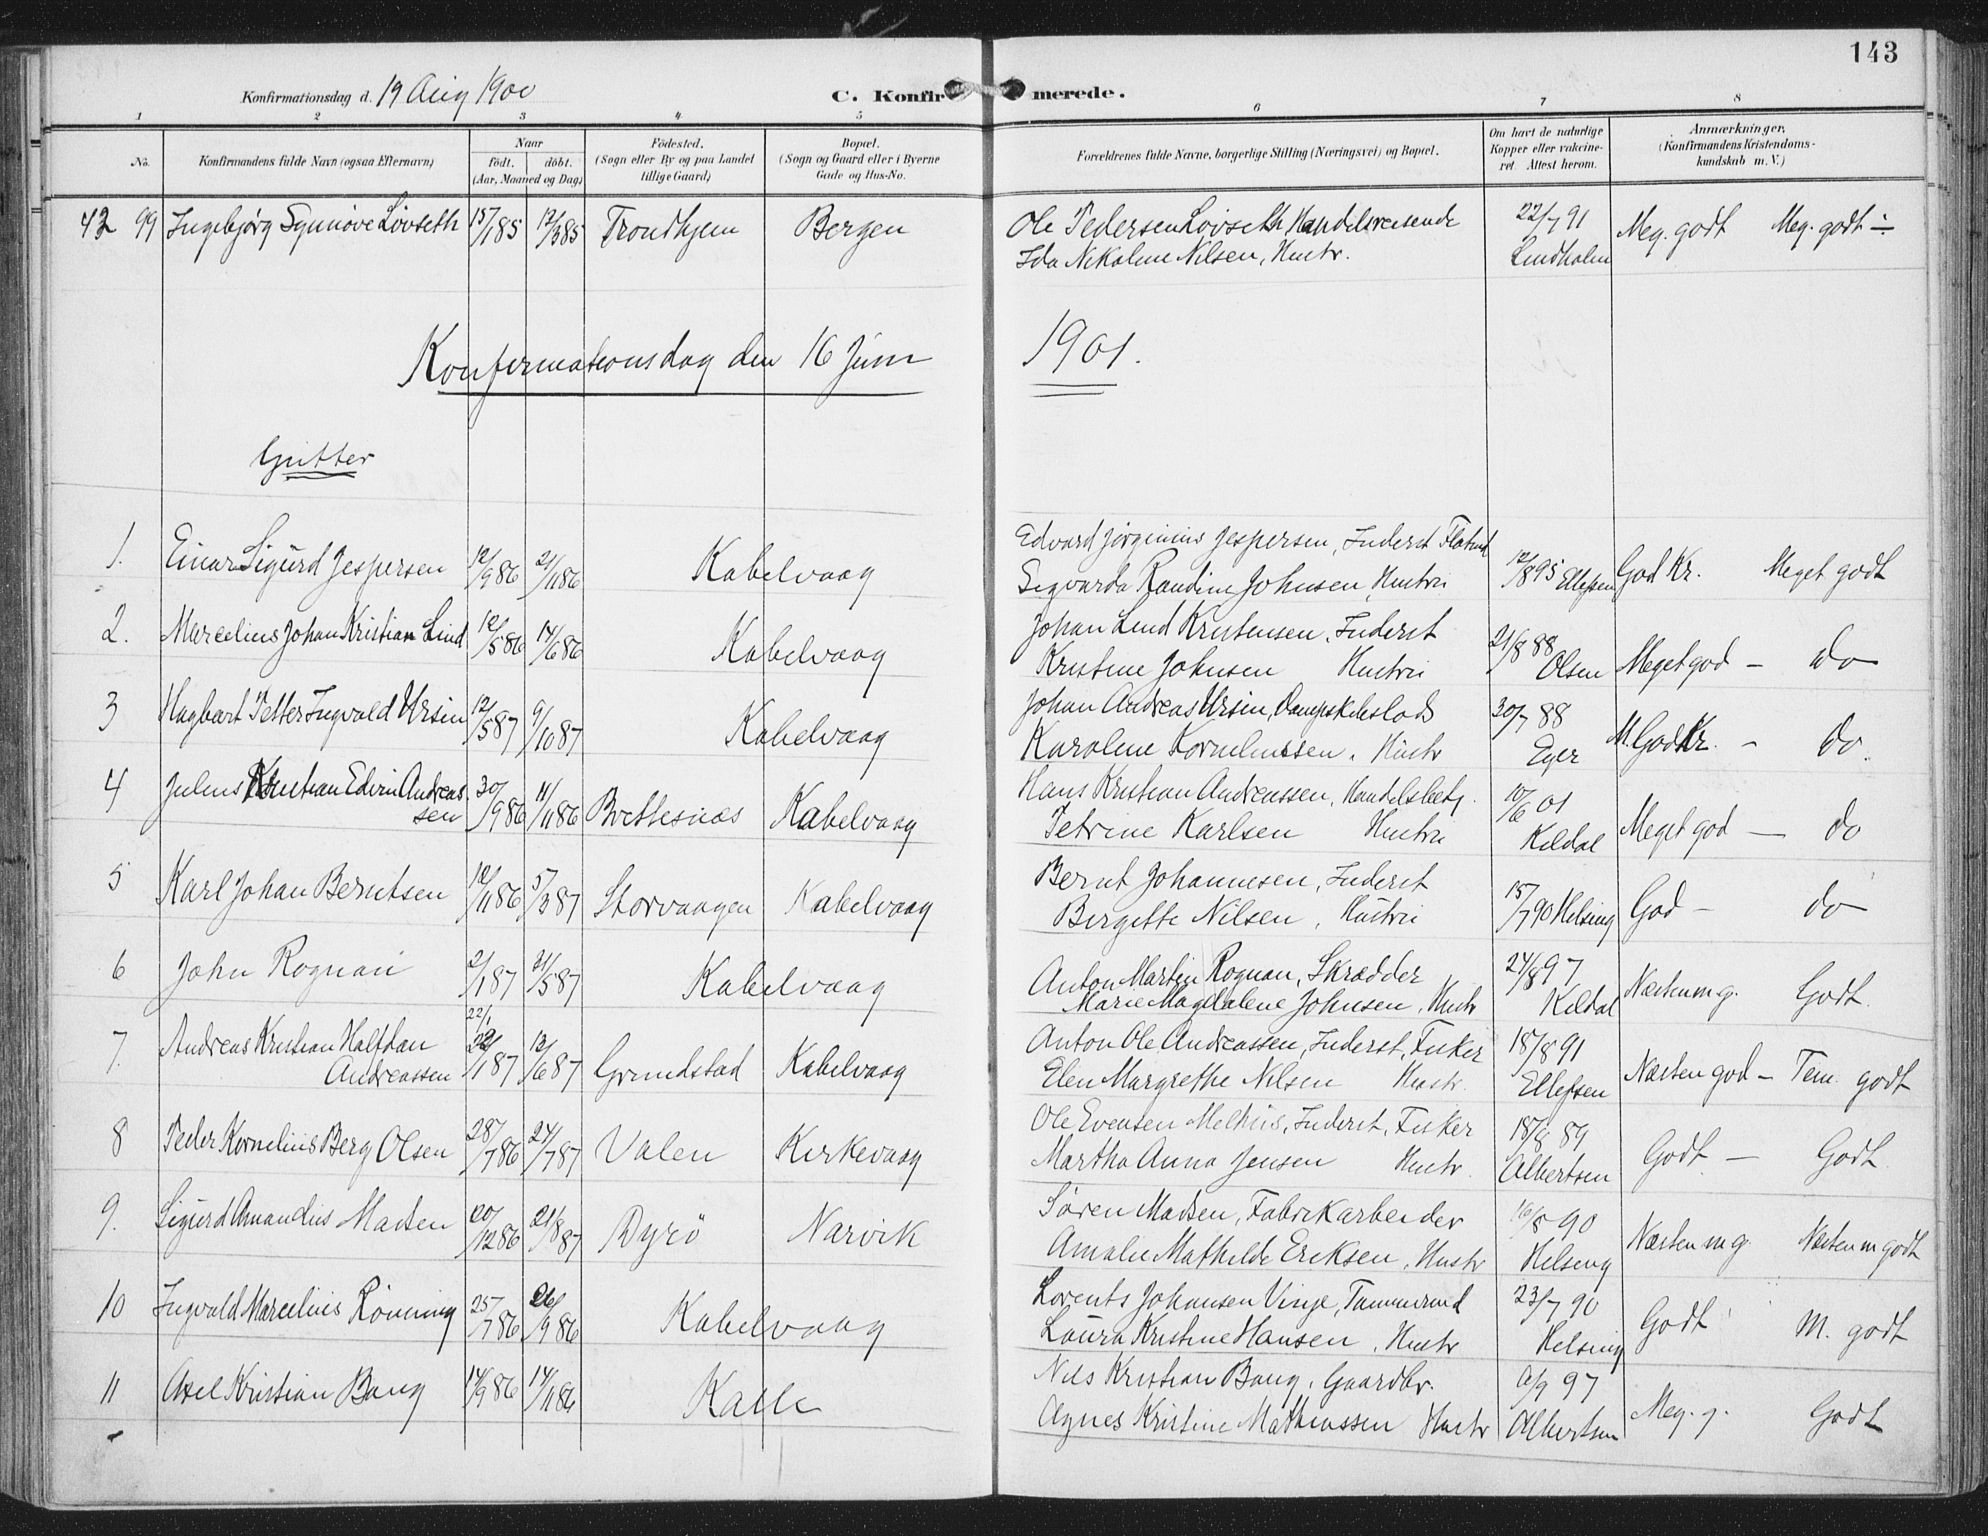 143
Konfirmationsdag d. 19 Aug 1900
C. Konfirmerede.
1 2 3 4 5 6 7 8
No.
Konfirmandens fulde Navn (ogsaa Efternavn)
Naar
födt. döbt.
(Aar, Maaned og Dag)
Födested.
(Sogn eller By og paa Landet
tillige Gaard)
Bopæl.
(Sogn og Gaard eller i Byerne
Gade og Hus-No.
Forældrenes fulde Navne, borgerlige Stilling (Næringsvei) og Bopæl.
Om havt de naturlige
Kopper eller vakcine-
ret. Attest herom.
Anmærkninger.
(Konfirmandens Kristendoms-
kundskab m. V.)
42 99 Ingebjørg Synnöve Lövseth 15/1 85 12/3 85 Trondhjem Bergen Ole Pedersen Lövseth, Handelsreisende 22/7 91 Meg. godt Meg. godt ÷
Ida Nikoline Nilsen, Hustr. Lindholm
Konfirmationsdag den 16 Juni 1901.
Gutter
1. Einar Sigurd Jespersen 12/9 86 21/11 86 Kabelvaag Edvard Jörginius Jespersen, Inderst
Segvarda Randine Johnsen, Hustru 12/8 95 Ellefsen God Kr. Meget godt
2. Marcelius Johan Kristian Lind 12/5 86 14/6 86 Kabelvaag Johan Lind Kristensen, Inderst 21/8 88 Meget god – do
Kristine Johnsen Hustru Olsen
3 Hagbart Petter Ingvald Ursin 12/5 87 9/10 87 Kabelvaag Johan Andreas Ursin, Dampskibslods 30/7 88 M. God Kr. – do
Karoline Korneliussen, Hustr Eyer
4 Julius Kristian Edvin Andreas 30/9 86 11/11 86 Brettesnæs Kabelvaag Hans Kristian Andreassen, Handelsbetj. 10/6 01 Meget god – do
sen Petrine Karlsen Hustru Kildal
5 Karl Johan Berntsen 12/11 86 5/3 87 Storvaagen Kabelvaag Bernt Johannesen, Inderst 15/7 90 Helsing God – do
Bergitte Nilsen, Hustru
6 John Rognan 2/1 87 31/5 87 Kabelvaag Anton Martin Rognan, Skrædder 24/8 97 Næsten m g. Godt.
Marie Magdalene Johnsen, Hustr Kildal
22/1
7. Andreas Kristian Halfdan 22/1 87 12/6 87 Grundstad Kabelvaag Anton Ole Andreassen, Inderst, Fisker 18/8 91 Næsten god – Tem. godt
Andreassen Elen Margrethe Nilsen Hustr. Ellefsen
8 Peder Kornelius Berg Olsen 28/7 86 24/7 87 Valen Kirkevaag Ole Evensen Melhus, Inderst, Fisker 18/8 89 Godt – Godt
Martha Anna Jensen Hustr. Albertsen
9. Sigurd Amandus Madsen 20/12 86 21/8 87 Dyrö Narvik Sören Madsen, Fabrikarbeider 16/8 90 Næsten m g. Næsten m godt
Amalie Mathilde Eriksen, Hustr Helsing
10 Ingvald Marcelius Rönning 25/7 86 26/9 86 Kabelvaag Lorents Johansen Vinje, Tømmermd 23/7 90 Godt M. godt
Laura Kristine Hansen, Hustr Helsing
11 Axel Kristian Bang 14/9 86 14/11 86 Kalle Nils Kristian Bang, Gaardbr. 97 Meg. g. Godt
Agnes Kristine Mathiassen Hustr Albertsen